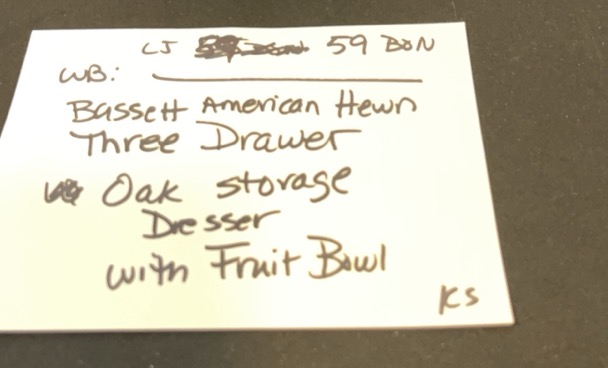 LJ 59 BON
WB:
Bassett American Hewn
Three Drawer
Oak storage
Dresser
with Fruit Bowl
KS